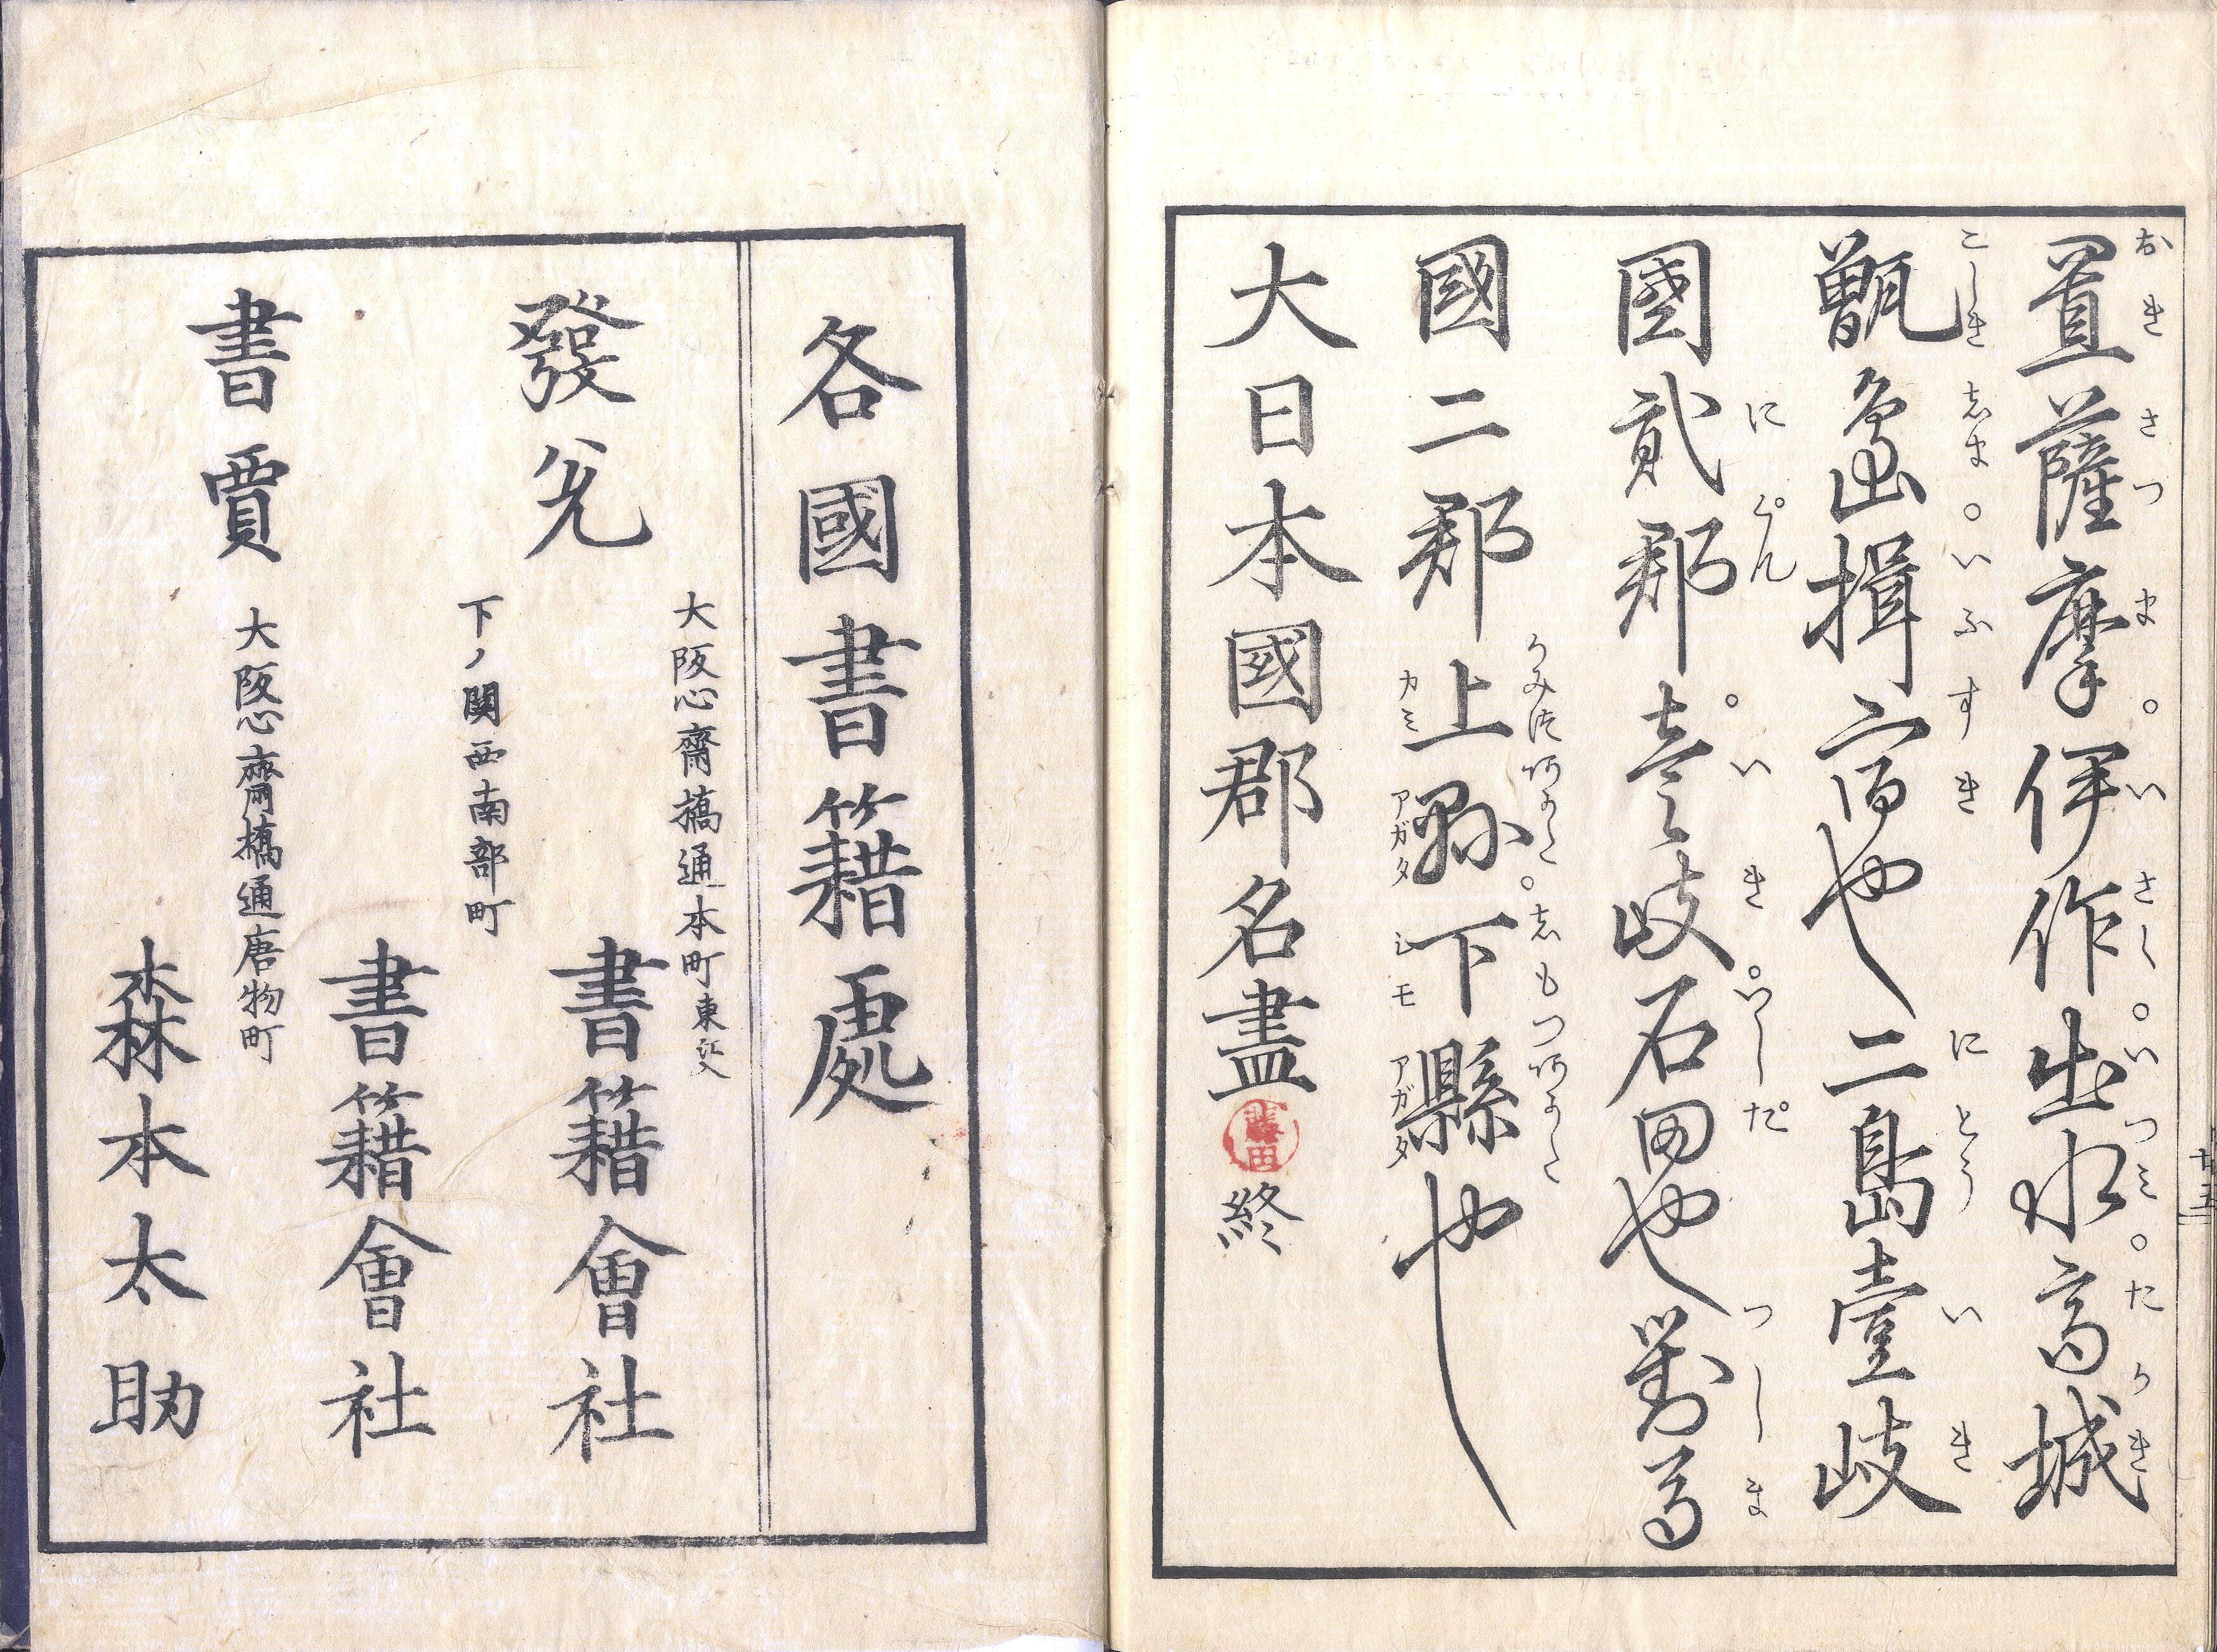 置薩摩伊作出水高城
おきさつま。いさく。いつミ。たかき
甑島揖宿也二島壹岐
こしき志ま。いふすき にとう いき
國貳郡壹岐石田也對馬
にぐん。いき。いした つしま
國二郡上縣下縣也
かみつあかた。志もつあかた
カミ アガタ シモ アガタ
大日本國郡名盡終
藤田
廿五
各國書籍處
發兌
大阪心齋橋通本町東
書籍會社
下ノ関西南部町
書籍會社
書賈
大阪心齋橋通唐物町
森本太助